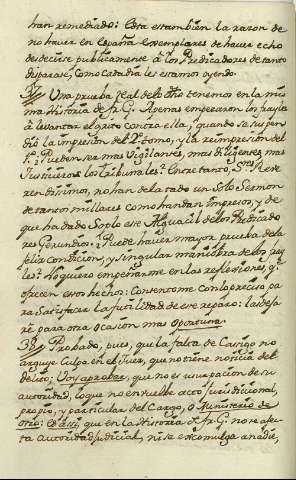 han remediado: Esta es tambien la razon de
no haver en España exemplares de haver echo
desdecirse publicamente à los Predicadores de tanto
disparate, como cada dia les estamos oyendo.
37 Una prueba Real de lo dho tenemos en la mis
ma Historia de Fr. G. Apenas empezaron los frayles
à levantar el grito contra ella, quando se suspen
diò la impresion del 2º tomo, y la reimpresion del
1º. Pueden ser mas Vigilantes, mas diligentes, mas
Justicieros los Tribunales? Entre tanto, SSres Reve
rendissimos, no han delatado un Solo Sermon
de tantos millares como handan Impresos, y de
que ha dado Soplo ese Alguacil de los Predicado
res Gerundios. Puede haver mayor prueba de la
feliz condicion, y singular maniobra de los fray
les? No quiero empeñarme en las reflexiones, q.
ofrecen estos hechos: Contentome con lo preciso pa
ra Satisfacer la futilidad de ese reparo: las dexa
rè para otra ocasion mas oportuna.
38 Probado, pues, que la falta de Castigo no
arguye Culpa en el Juez, que no tiene noticia del
delito; Voy a probar, que no es usurpacion de su
autoridad, lo que no enbuelbe acto jurisdiccional,
propio, y particular del Cargo, o Ministerio de
otro: Es asi, que en la Historia de Fr. G. no se afec
ta autoridad Judicial, ni se excomulga a nadie,